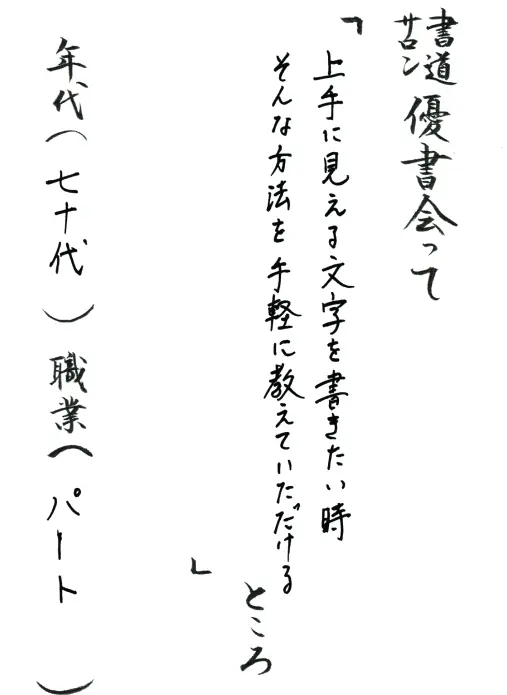 書道サロン 優書会って
「上手に見える文字を書きたい時
そんな方法を手軽に教えていただける
」ところ
年代（七十代）職業（パート）